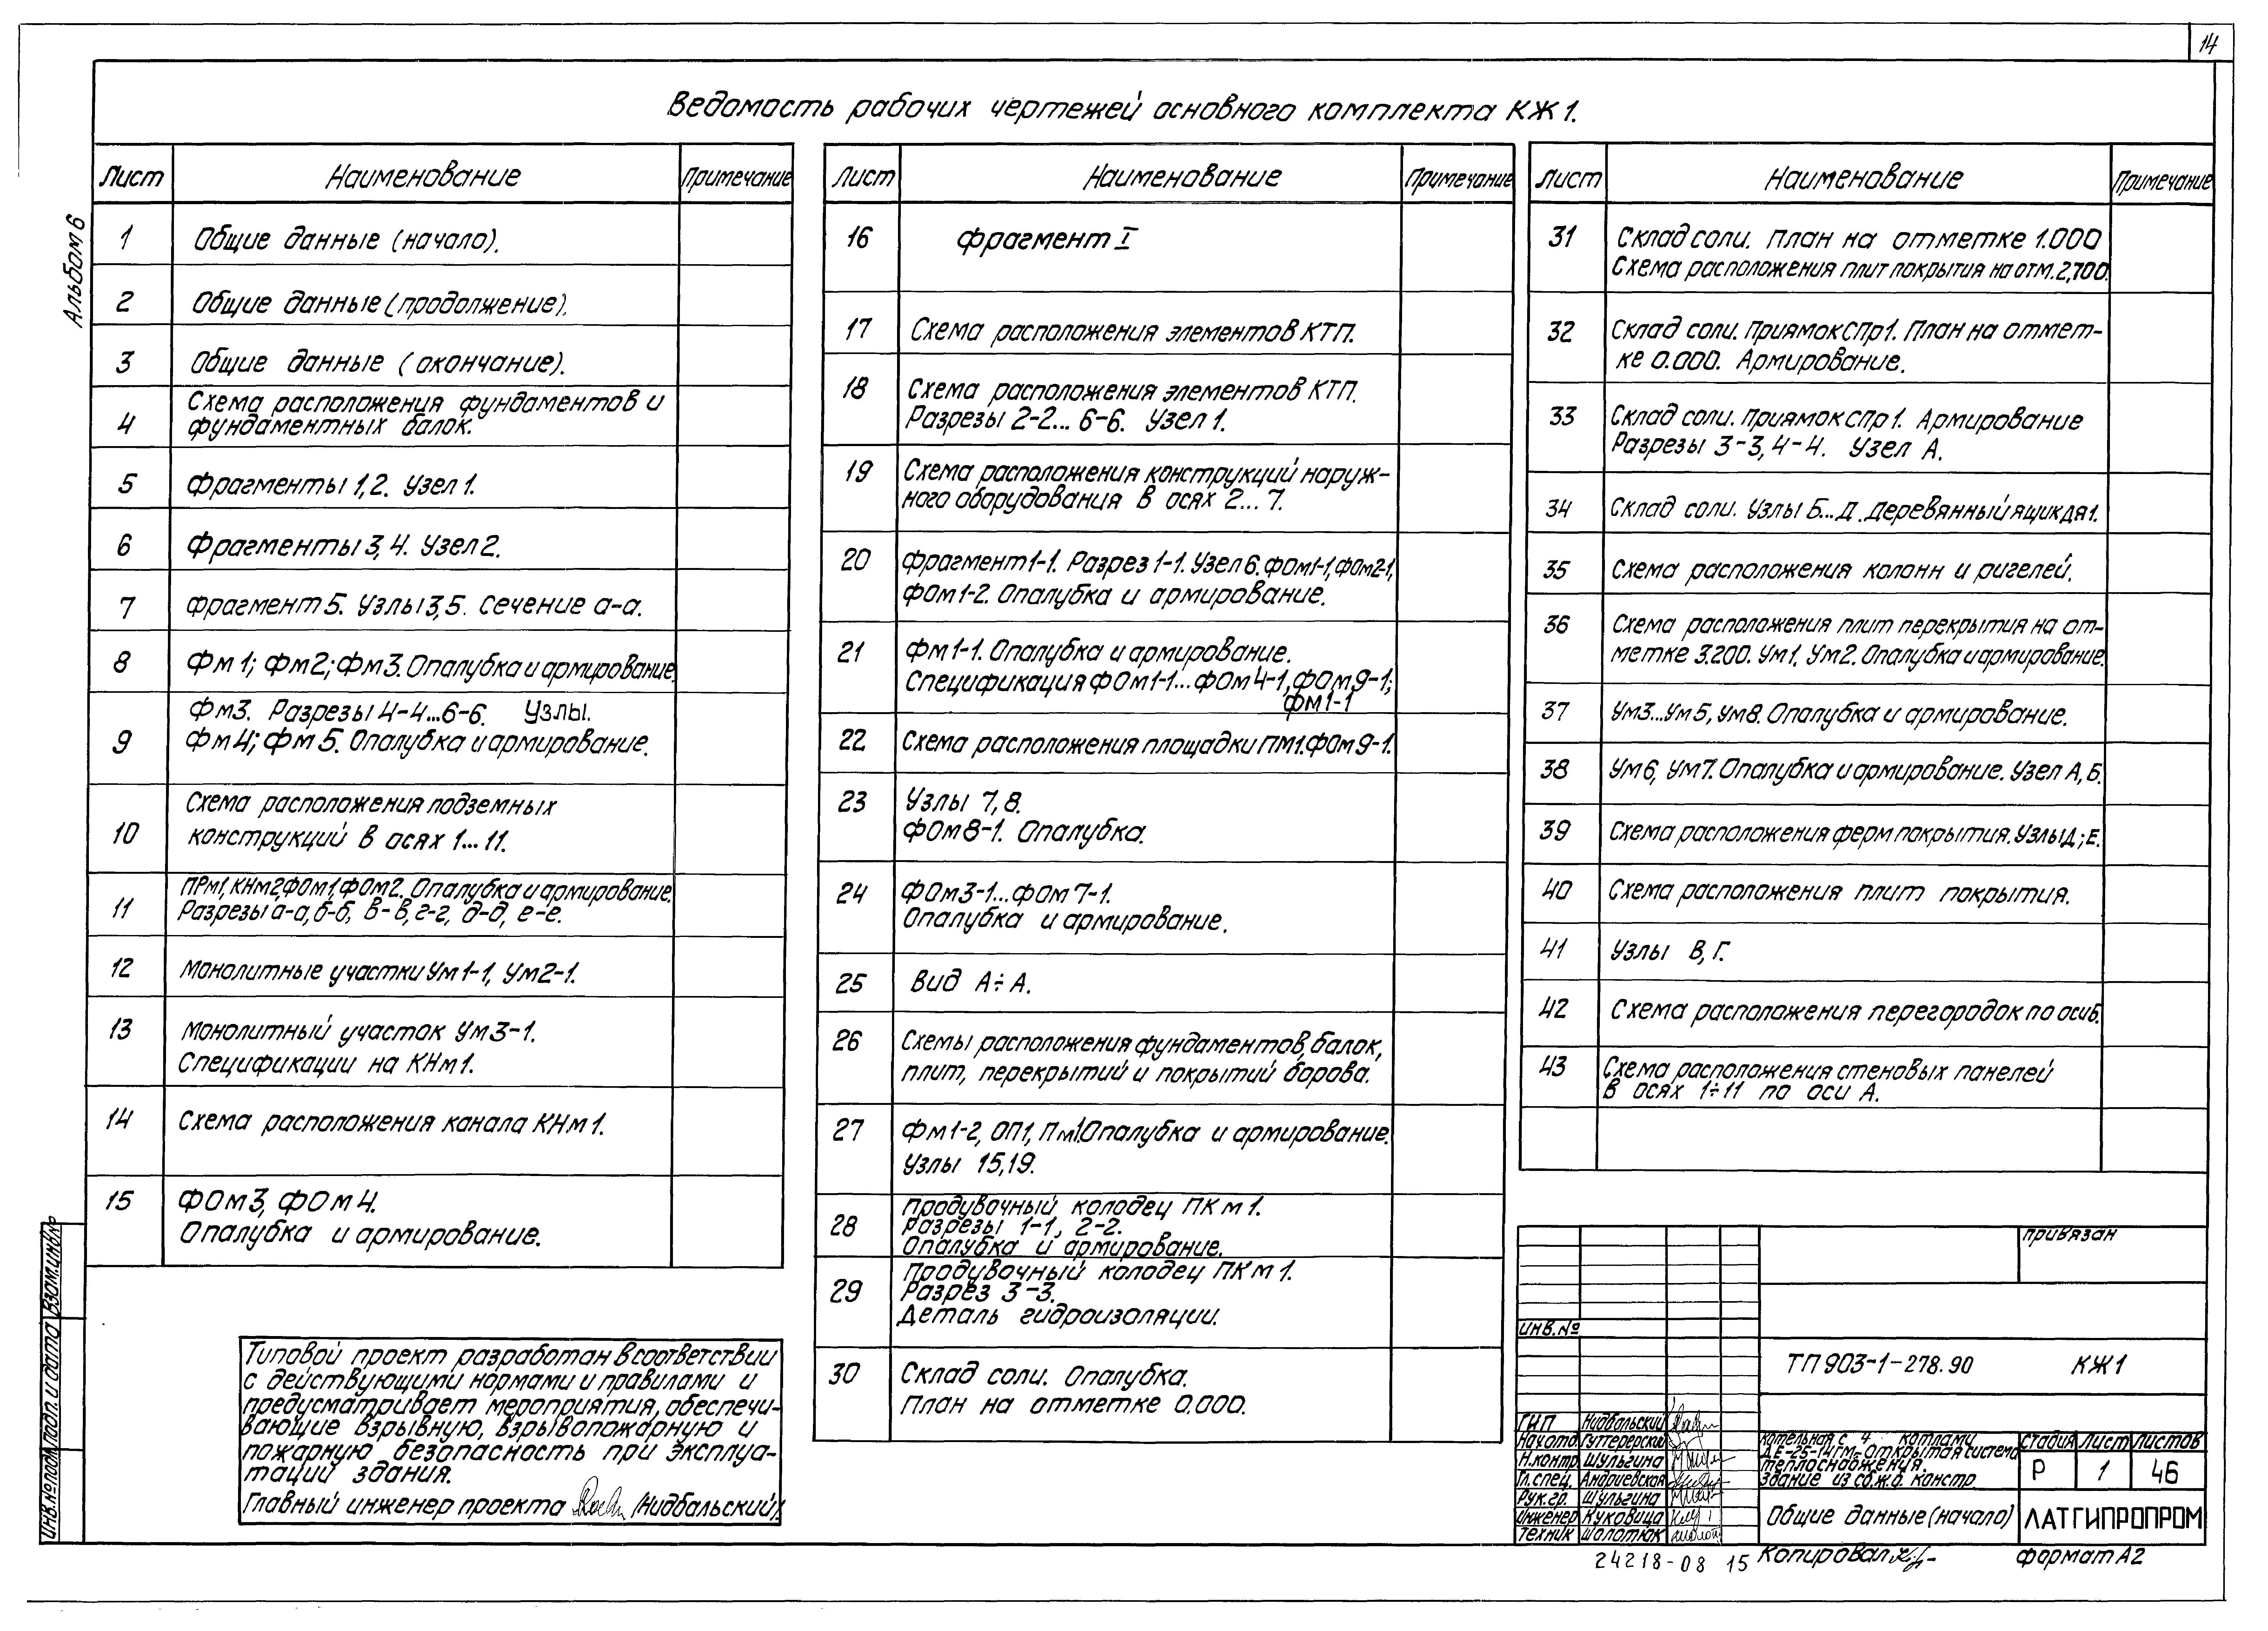 14
Ведомость рабочих чертежей основного комплекта КЖ1.
Альбом 6
Лист Наименование Примечание
1 Общие данные (начало).
2 Общие данные (продолжение).
3 Общие данные (окончание).
4 Схема расположения фундаментов и
фундаментных балок.
5 Фрагменты 1,2. Узел 1.
6 Фрагменты 3,4. Узел 2.
7 Фрагмент 5. Узлы 3,5. Сечение а-а.
8 Фм1; Фм2; Фм3. Опалубка и армирование.
9 Фм3. Разрезы 4-4...6-6. Узлы.
Фм4; Фм5. Опалубка и армирование.
10 Схема расположения подземных
конструкций в осях 1...11.
11 ПРм1, КНм2, ФОм1, ФОм2. Опалубка и армирование.
Разрезы а-а, б-б, в-в, г-г, д-д, е-е.
12 Монолитные участки Ум1-1, Ум2-1.
13 Монолитный участок Ум3-1.
Спецификации на КНм1.
14 Схема расположения канала КНм1.
15 ФОм3, ФОм4.
Опалубка и армирование.
Лист Наименование Примечание
16 Фрагмент I
17 Схема расположения элементов КТП.
18 Схема расположения элементов КТП.
Разрезы 2-2... 6-6. Узел 1.
19 Схема расположения конструкций наруж-
ного оборудования в осях 2...7.
20 Фрагмент 1-1. Разрез 1-1. Узел 6. ФОм1-1, ФОм2-1,
ФОм1-2. Опалубка и армирование.
21 Фм1-1. Опалубка и армирование.
Спецификация ФОм1-1...ФОм4-1, ФОм9-1;
Фм1-1
22 Схема расположения площадки ПМ1. ФОм9-1.
23 Узлы 7,8.
ФОм8-1. Опалубка.
24 ФОм3-1...ФОм7-1.
Опалубка и армирование.
25 Вид А÷А.
26 Схемы расположения фундаментов, балок,
плит, перекрытий и покрытий борова.
27 Фм1-2, ОП1, Пм1. Опалубка и армирование.
Узлы 15,19.
28 Продувочный колодец ПКм1.
Разрезы 1-1, 2-2.
Опалубка и армирование.
29 Продувочный колодец ПКм1.
Разрез 3-3.
Деталь гидроизоляции.
30 Склад соли. Опалубка.
План на отметке 0.000.
Лист Наименование Примечание
31 Склад соли. План на отметке 1.000
Схема расположения плит покрытия на отм. 2,700.
32 Склад соли. Приямок СПр1. План на отмет-
ке 0.000. Армирование.
33 Склад соли. Приямок СПр1. Армирование
Разрезы 3-3, 4-4. Узел А.
34 Склад соли. Узлы Б...Д. Деревянный ящик ДЯ1.
35 Схема расположения колонн и ригелей.
36 Схема расположения плит перекрытия на от-
метке 3.200. Ум1, Ум2. Опалубка и армирование.
37 Ум3...Ум5, Ум8. Опалубка и армирование.
38 Ум6, Ум7. Опалубка и армирование. Узел А, Б.
39 Схема расположения ферм покрытия. Узлы Д; Е.
40 Схема расположения плит покрытия.
41 Узлы В, Г.
42 Схема расположения перегородок по оси Б.
43 Схема расположения стеновых панелей
в осях 1÷11 по оси А.
Типовой проект разработан в соответствии
с действующими нормами и правилами и
предусматривает мероприятия, обеспечи-
вающие взрывную, взрывопожарную и
пожарную безопасность при эксплуа-
тации здания.
Главный инженер проекта (Нидбальский).
Инв.№подл. Подп. и дата Взам.инв№
Привязан
Инв.№
ТП 903-1-278.90 КЖ1
ГИП Нидбальский
Нач.отд. Гуттерерский
Н.контр. Шульгина
Гл.спец. Андриевская
Рук.гр. Шульгина
Инженер Куковица
Техник Шолотюк
Котельная с 4 котлами
ДЕ-25-14ГМ. Открытая система
теплоснабжения.
Здание из сб.ж.б. констр.
Стадия Лист Листов
Р 1 46
Общие данные (начало)
ЛАТГИПРОПРОМ
24218-08 15 Копировал
Формат А2